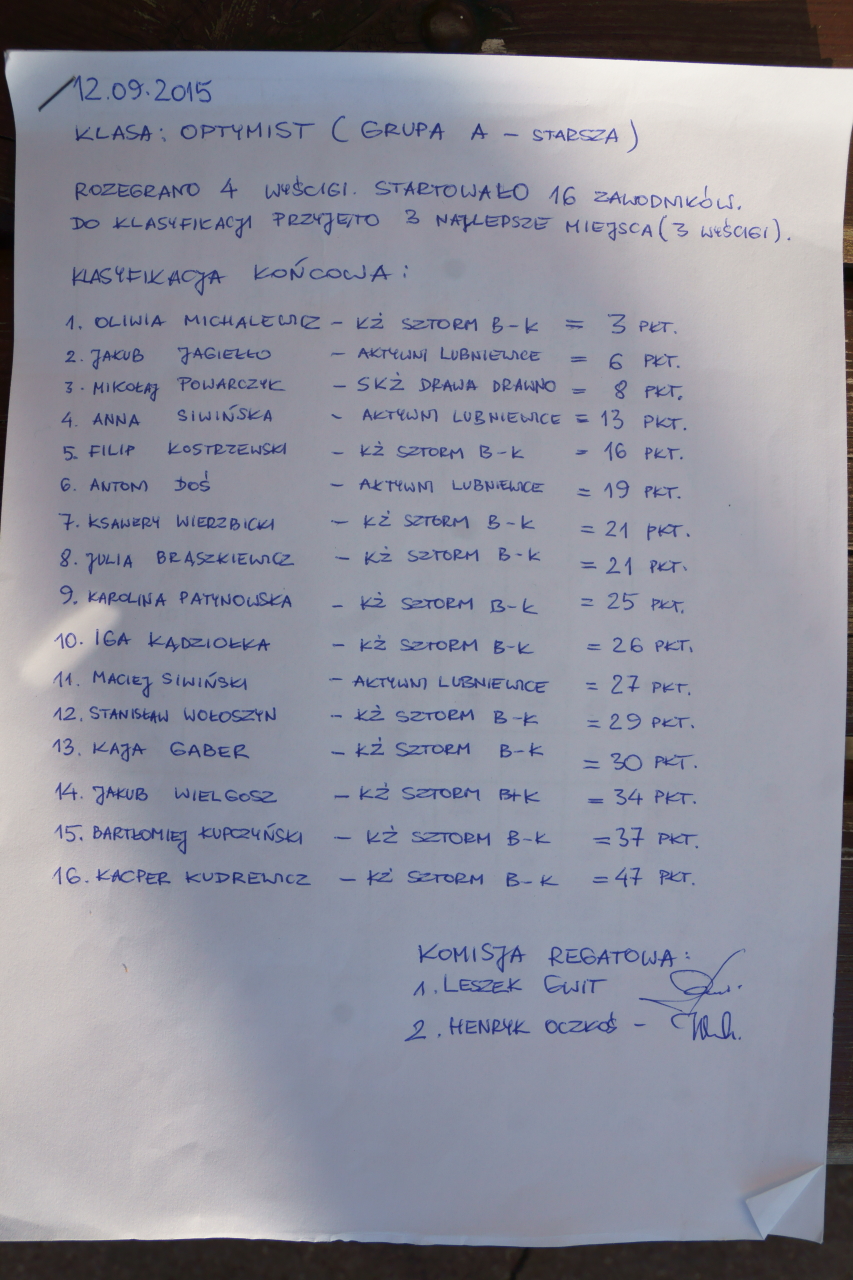 12.09.2015
KLASA: OPTYMIST (GRUPA A - STARSZA)
ROZEGRANO 4 WYŚCIGI. STARTOWAŁO 16 ZAWODNIKÓW.
DO KLASYFIKACJI PRZYJĘTO 3 NAJLEPSZE MIEJSCA (3 WYŚCIGI).
KLASYFIKACJA KOŃCOWA:
1. OLIWIA MICHALEWICZ - KŻ SZTORM B-K = 3 PKT.
2. JAKUB JAGIEŁŁO - AKTYWNI LUBNIEWICE = 6 PKT.
3. MIKOŁAJ POWARCZYK - SKŻ DRAWA DRAWNO = 8 PKT.
4. ANNA SIWIŃSKA - AKTYWNI LUBNIEWICE = 13 PKT.
5. FILIP KOSTRZEWSKI - KŻ SZTORM B-K = 16 PKT.
6. ANTONI DOŚ - AKTYWNI LUBNIEWICE = 19 PKT.
7. KSAWERY WIERZBICKI - KŻ SZTORM B-K = 21 PKT.
8. JULIA BRĄSZKIEWICZ - KŻ SZTORM B-K = 21 PKT.
9. KAROLINA PATYNOWSKA - KŻ SZTORM B-K = 25 PKT.
10. IGA KĄDZIOŁKA - KŻ SZTORM B-K = 26 PKT.
11. MACIEJ SIWIŃSKI - AKTYWNI LUBNIEWICE = 27 PKT.
12. STANISŁAW WOŁOSZYN - KŻ SZTORM B-K = 29 PKT.
13. KAJA GABER - KŻ SZTORM B-K = 30 PKT.
14. JAKUB WIELGOSZ - KŻ SZTORM B-K = 34 PKT.
15. BARTŁOMIEJ KUPCZYŃSKI - KŻ SZTORM B-K = 37 PKT.
16. KACPER KUDREWICZ - KŻ SZTORM B-K = 47 PKT.
KOMISJA REGATOWA:
1. LESZEK GWIT
2. HENRYK OCZKOŚ -